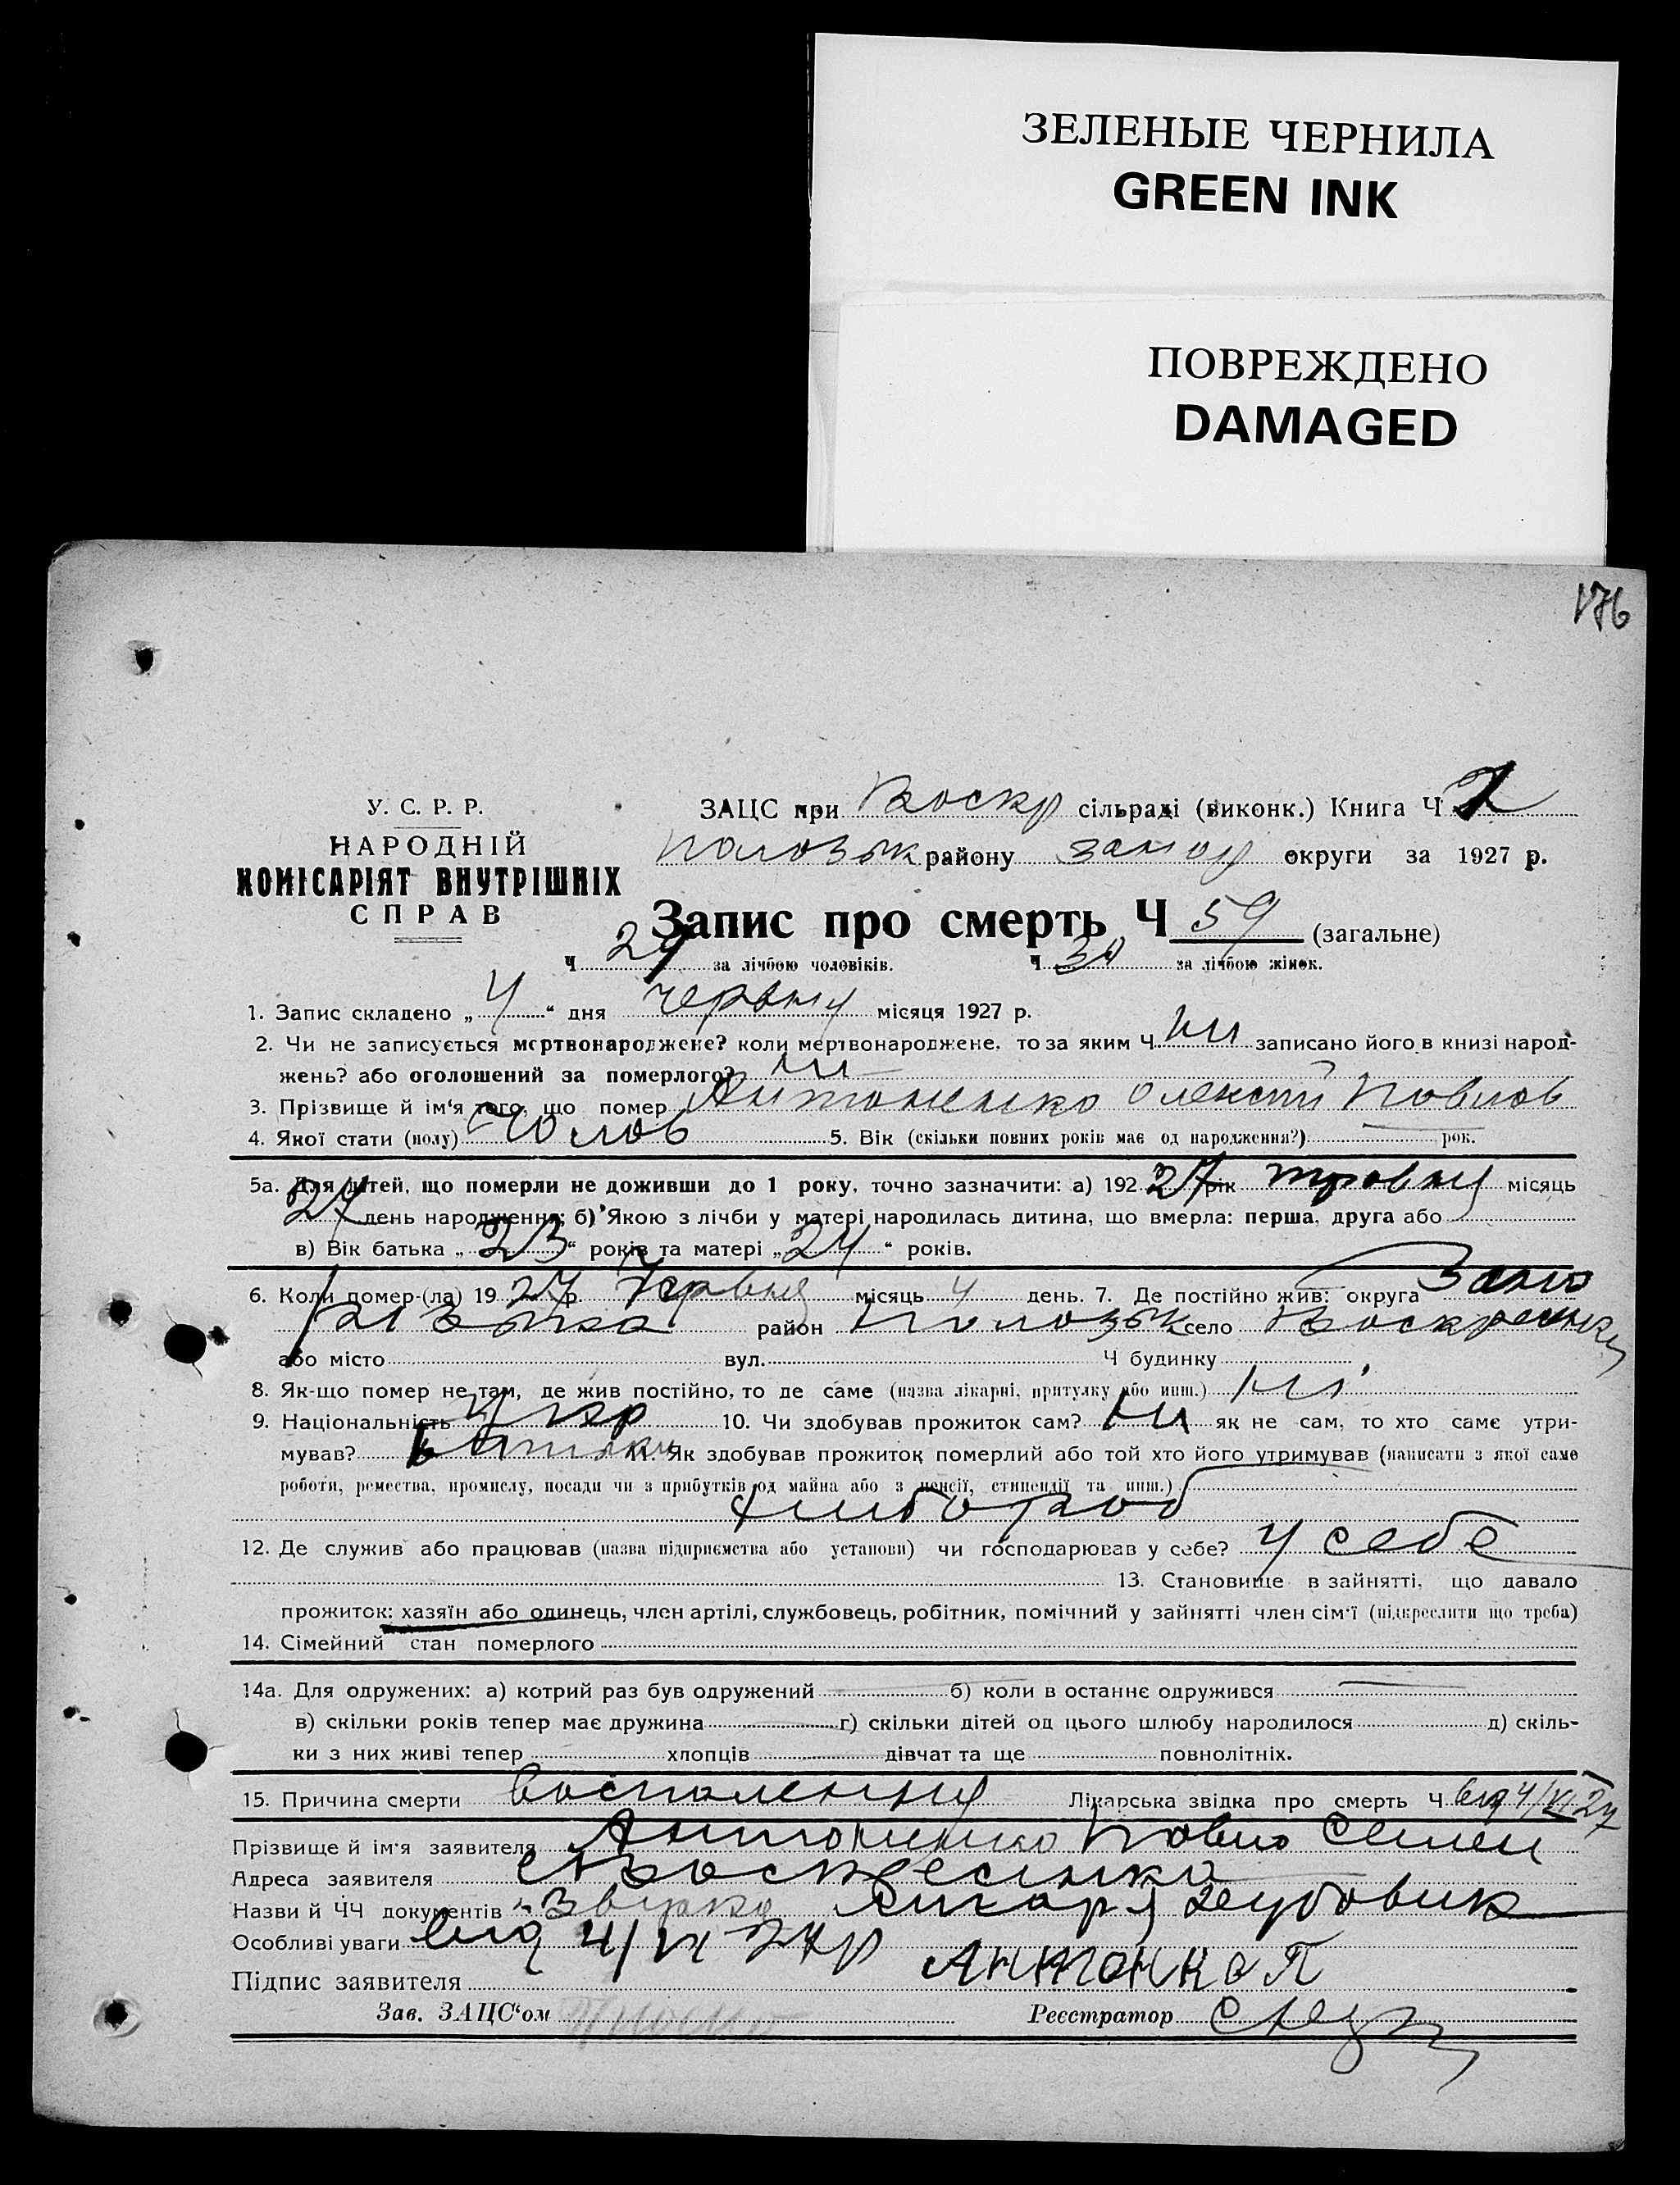 ЗЕЛЕНЫЕ ЧЕРНИЛА
GREEN INK
ПОВРЕЖДЕНО
DAMAGED
176
У. С. Р. Р.
НАРОДНІЙ
КОМІСАРІЯТ ВНУТРІШНІХ
СПРАВ
ЗАЦС при Воскр сільраді (виконк.) Книга Ч 2
Полозьк району Запор округи за 1927 р.
Запис про смерть Ч 59 (загальне)
Ч 29 за лічбою чоловіків. Ч 30 за лічбою жінок.
1. Запис складено „ 4 “ дня червня місяця 1927 р.
2. Чи не записується мертвонароджене? коли мертвонароджене, то за яким Ч ні записано його в книзі народ-
жень? або оголошений за померлого? ні
3. Прізвище й ім'я того, що помер Антоненко Олексій Павлов
4. Якої стати (полу) Чолов 5. Вік (скільки повних років має од народження?) рок.
5а. Для дітей, що померли не доживши до 1 року, точно зазначити: а) 192 27 рік травня місяць
24 день народження; б) Якою з лічби у матері народилась дитина, що вмерла: перша, друга або
в) Вік батька „ 23 “ років та матері „ 24 “ років.
6. Коли помер-(ла) 19 27 р. Червня місяць 4 день. 7. Де постійно жив: округа Запо
різька район Полозьк село Воскресенка
або місто вул. Ч будинку
8. Як-що помер не там, де жив постійно, то де саме (назва лікарні, притулку або инш.) ні
9. Національність Укр 10. Чи здобував прожиток сам? ні як не сам, то хто саме утри-
мував? Батьки 11. Як здобував прожиток померлий або той хто його утримував (написати з якої саме
роботи, ремества, промислу, посади чи з прибутків од майна або з пенсії, стипендії та инш.)
хлібороб
12. Де служив або працював (назва підприємства або установи) чи господарював у себе? У себе
13. Становище в зайнятті, що давало
прожиток: хазяїн або одинець, член артілі, службовець, робітник, помічний у зайнятті член сім'ї (підкреслити що треба)
14. Сімейний стан померлого
14а. Для одружених: а) котрий раз був одружений б) коли в останнє одружився
в) скільки років тепер має дружина г) скільки дітей од цього шлюбу народилося д) скіль-
ки з них живі тепер хлопців дівчат та ще повнолітніх.
15. Причина смерти воспаления Лікарська звідка про смерть Ч від 4/VI 27
Прізвище й ім'я заявителя Антоненко Павло Семен
Адреса заявителя с Воскресенка
Назви й ЧЧ документів Звідка Лікаря
Особливі уваги від 4/VI 27р
Підпис заявителя
Зав. ЗАЦС'ом
Реєстратор